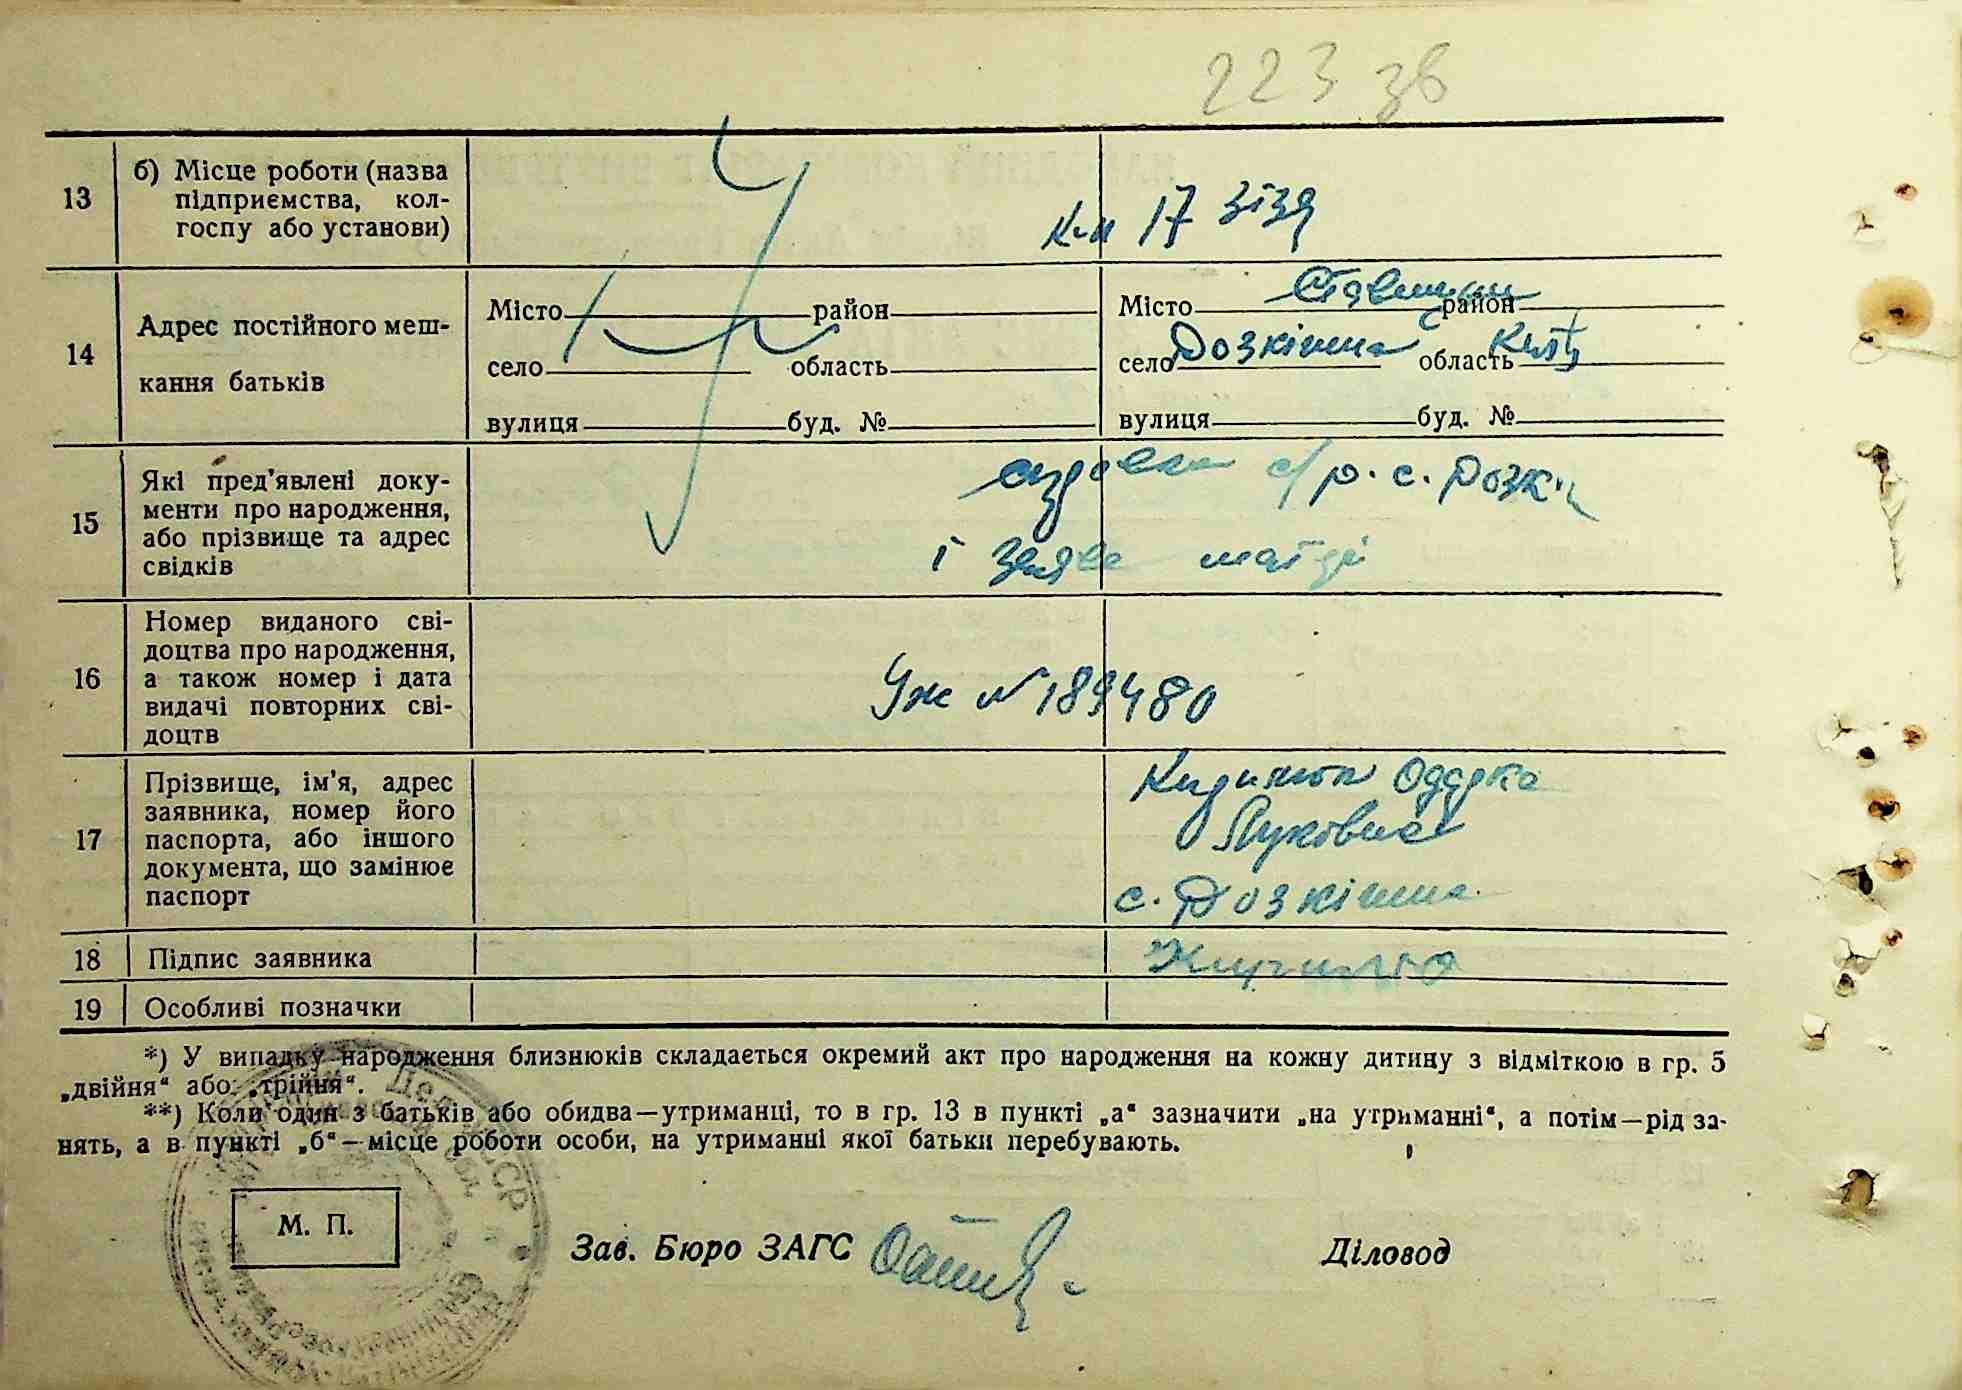 223 зв
13
б) Місце роботи (назва
підприємства, кол-
госпу або установи)
к-п 17 зізд
14
Адрес постійного меш-
кання батьків
Місто район
село область
вулиця буд. №
Місто Ставищан район
село Розкішна область Київ
вулиця буд. №
15
Які пред'явлені доку-
менти про народження,
або прізвище та адрес
свідків
с/р. с. Розк
і заява матері
16
Номер виданого сві-
доцтва про народження,
а також номер і дата
видачі повторних сві-
доцтв
Уж № 189480
17
Прізвище, ім'я, адрес
заявника, номер його
паспорта, або іншого
документа, що замінює
паспорт
Одарка
Луковна
с. Розкішна
18
Підпис заявника
19
Особливі позначки
*) У випадку народження близнюків складається окремий акт про народження на кожну дитину з відміткою в гр. 5
„двійня“ або „трійня“.
**) Коли один з батьків або обидва—утриманці, то в гр. 13 в пункті „а“ зазначити „на утриманні“, а потім—рід за-
нять, а в пункті „б“—місце роботи особи, на утриманні якої батьки перебувають.
М. П.
Зав. Бюро ЗАГС
Діловод